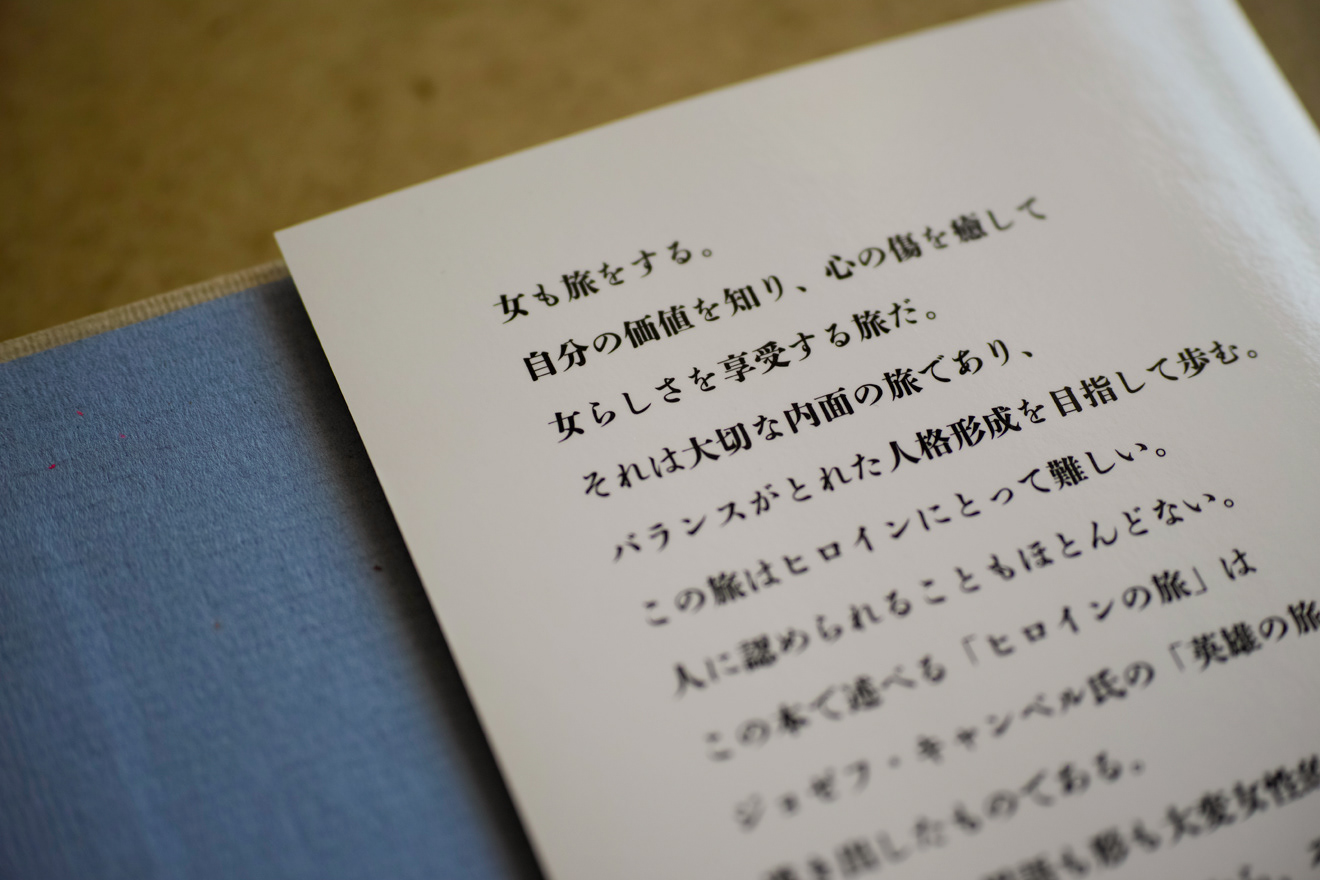 女も旅をする。
自分の価値を知り、心の傷を癒して
女らしさを享受する旅だ。
それは大切な内面の旅であり、
バランスがとれた人格形成を目指して歩む。
この旅はヒロインにとって難しい。
人に認められることもほとんどない。
この本で述べる「ヒロインの旅」は
ジョゼフ・キャンベル氏の「英雄の旅
き出したものである。
も形も大変女性的